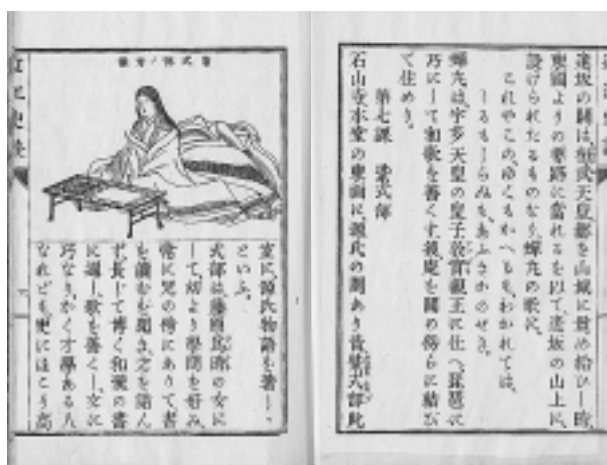 逢坂の關は、桓武天皇都を山城に奠め給ひし時、
東國よりの要路に當れるを以て、逢坂の山上に、
設けられたるものなり。蟬丸の歌に、
これやこの、ゆくもかへるも、わかれては、
しるもしらぬも、あふさかのせき。
蟬丸は、宇多天皇の皇子敦實親王に仕へ、琵琶に
巧にして和歌を善くす。後庵を關の傍らに結び
て住めり。
第七課 紫式部
石山寺本堂の東面に、源氏の間あり、昔紫式部此
室に、源氏物語を著し〻
といふ。
式部は、藤原爲時の女に
して、幼より學問を好み、
常に兄の傍にありて書
を讀むを聞き、之を諳ん
ず。長じて博く和漢の書
に通し、歌を善くし、文に
巧なり。かく才學ある人
なれども、更にほこり高